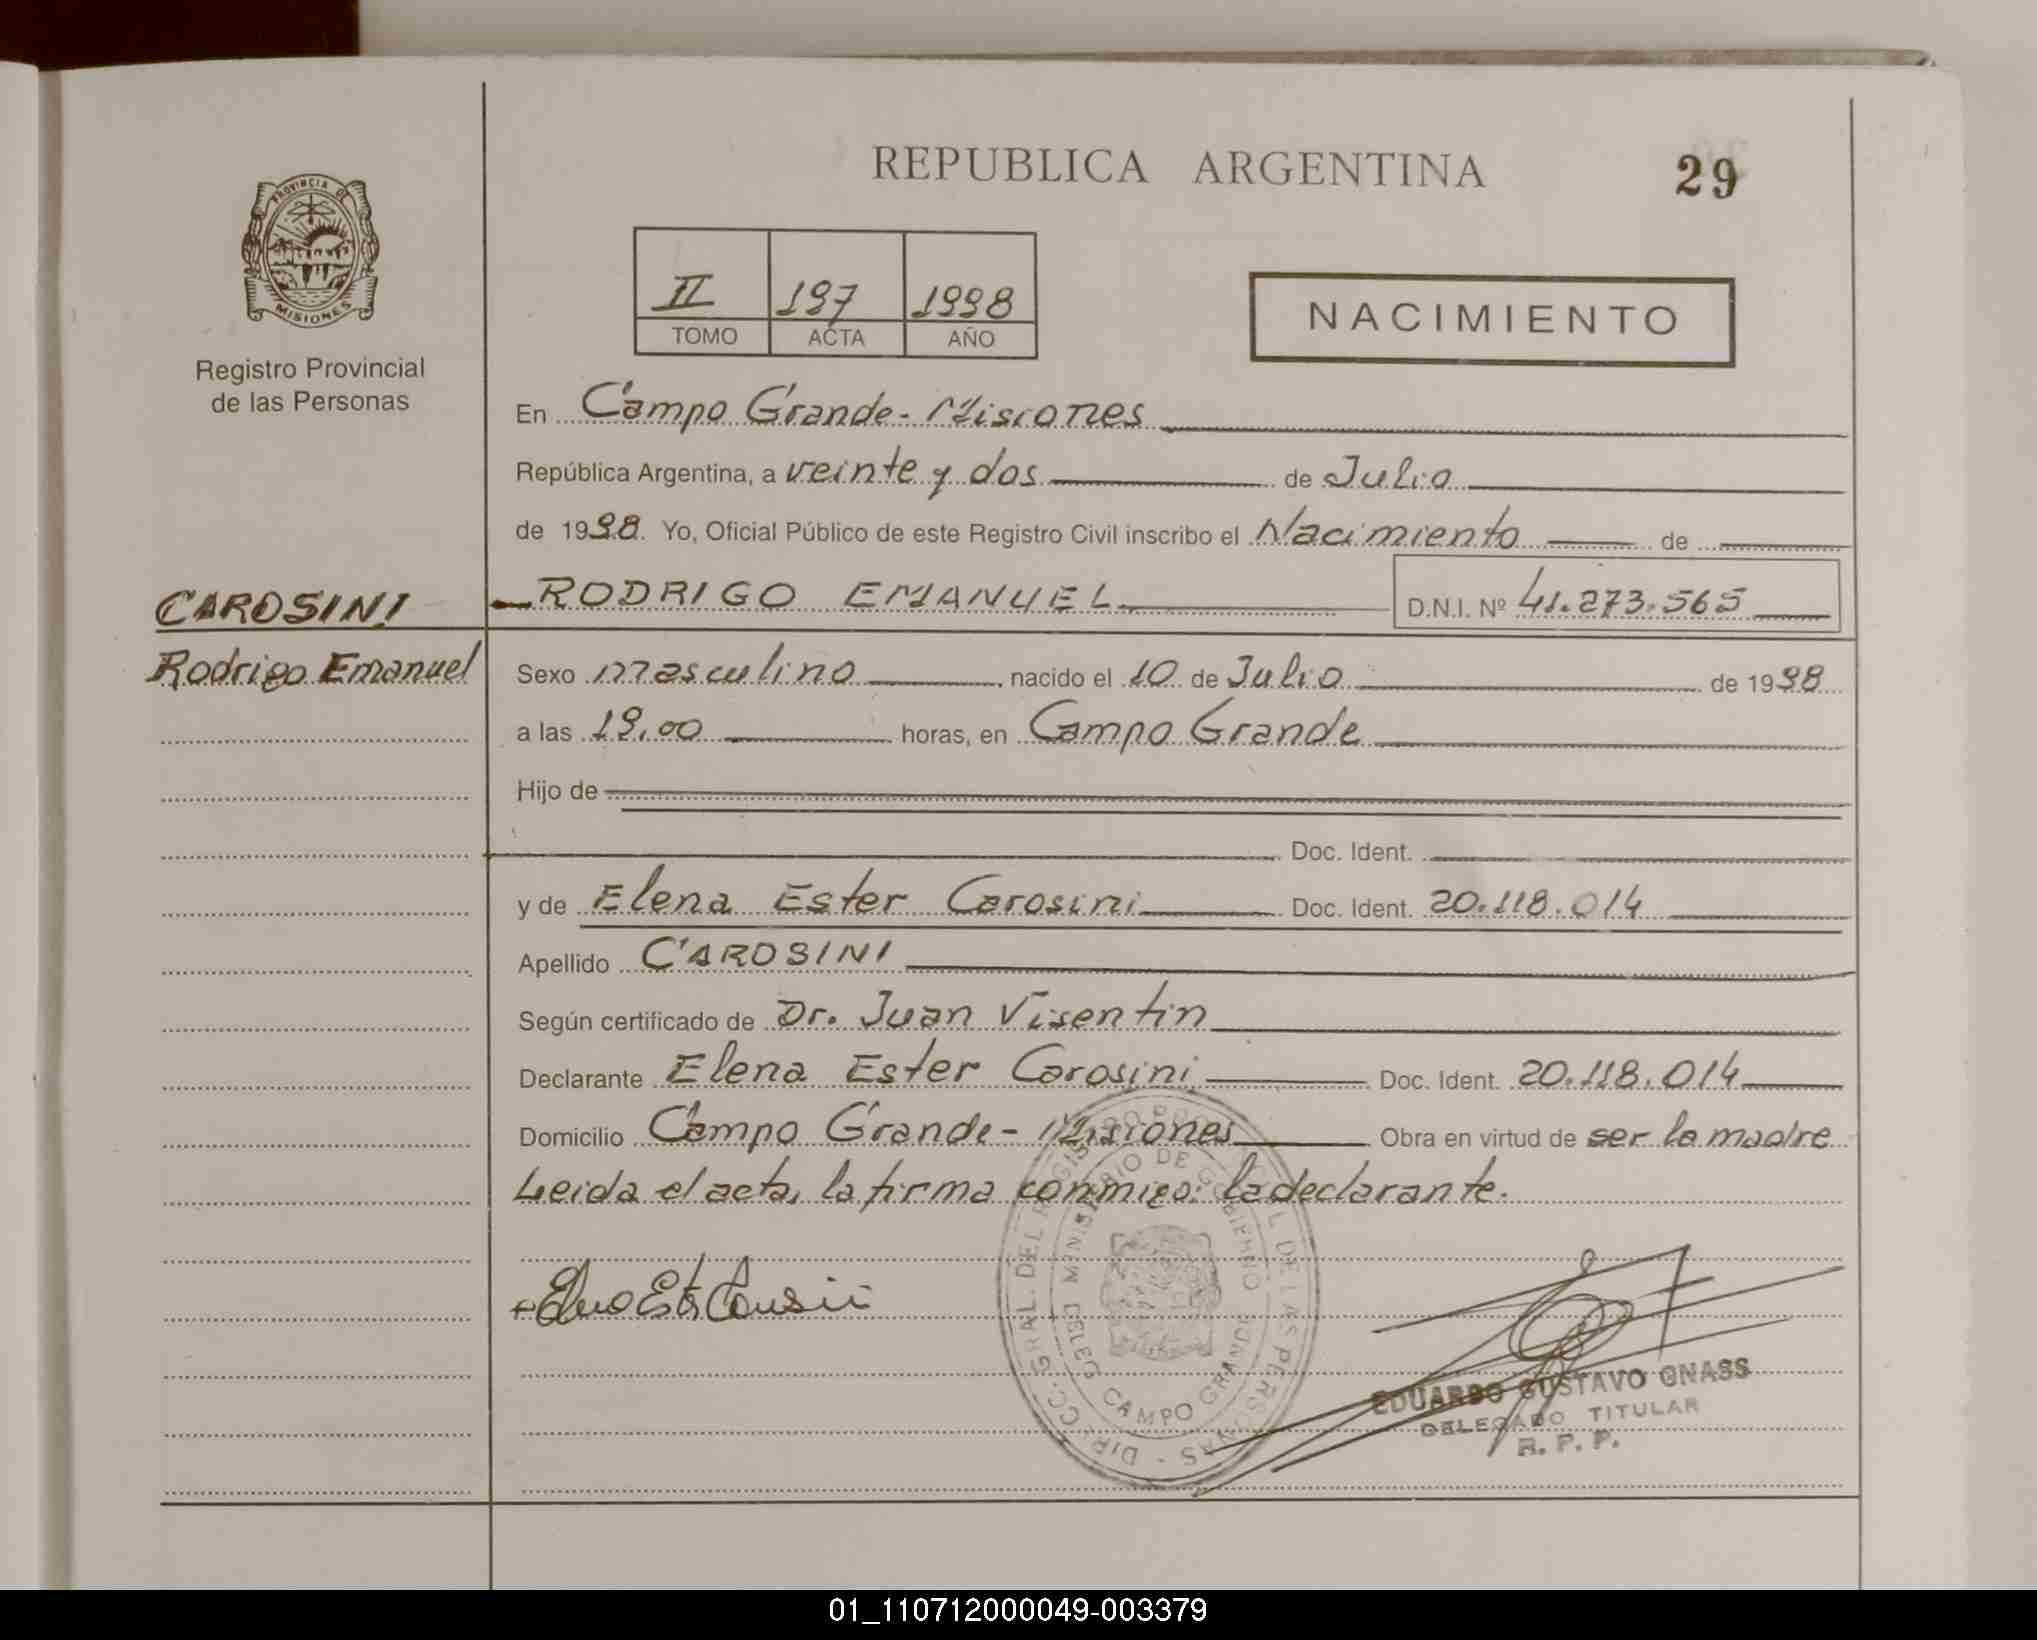 REPUBLICA ARGENTINA
29
PROVINCIA DE
MISIONES
Registro Provincial
de las Personas
II 197 1998
TOMO ACTA AÑO
NACIMIENTO
En Campo Grande - Misiones
República Argentina, a veinte y dos de Julio
de 1998. Yo, Oficial Público de este Registro Civil inscribo el Nacimiento de
CAROSINI
RODRIGO EMANUEL D.N.I. Nº 41.273.565
Rodrigo Emanuel
Sexo masculino nacido el 10 de Julio de 1998
a las 19,00 horas, en Campo Grande
Hijo de
Doc. Ident.
y de Elena Ester Carosini Doc. Ident. 20.118.014
Apellido CAROSINI
Según certificado de Dr. Juan Visentin
Declarante Elena Ester Carosini Doc. Ident. 20.118.014
Domicilio Campo Grande - Misiones Obra en virtud de ser la madre
Leida el acta, la firma conmigo: la declarante.
DIRECC. GRAL. DEL REGISTRO PROVINCIAL DE LAS PERSONAS -
MINISTERIO DE GOBIERNO
DELEG. CAMPO GRANDE
EDUARDO GUSTAVO GNASS
DELEGADO TITULAR
R. P. P.
01_110712000049-003379